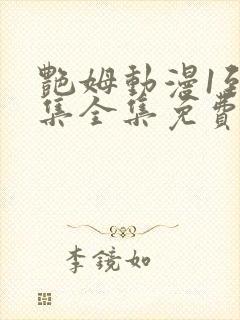 艷姆動漫1至
集全集免費
李鏡如